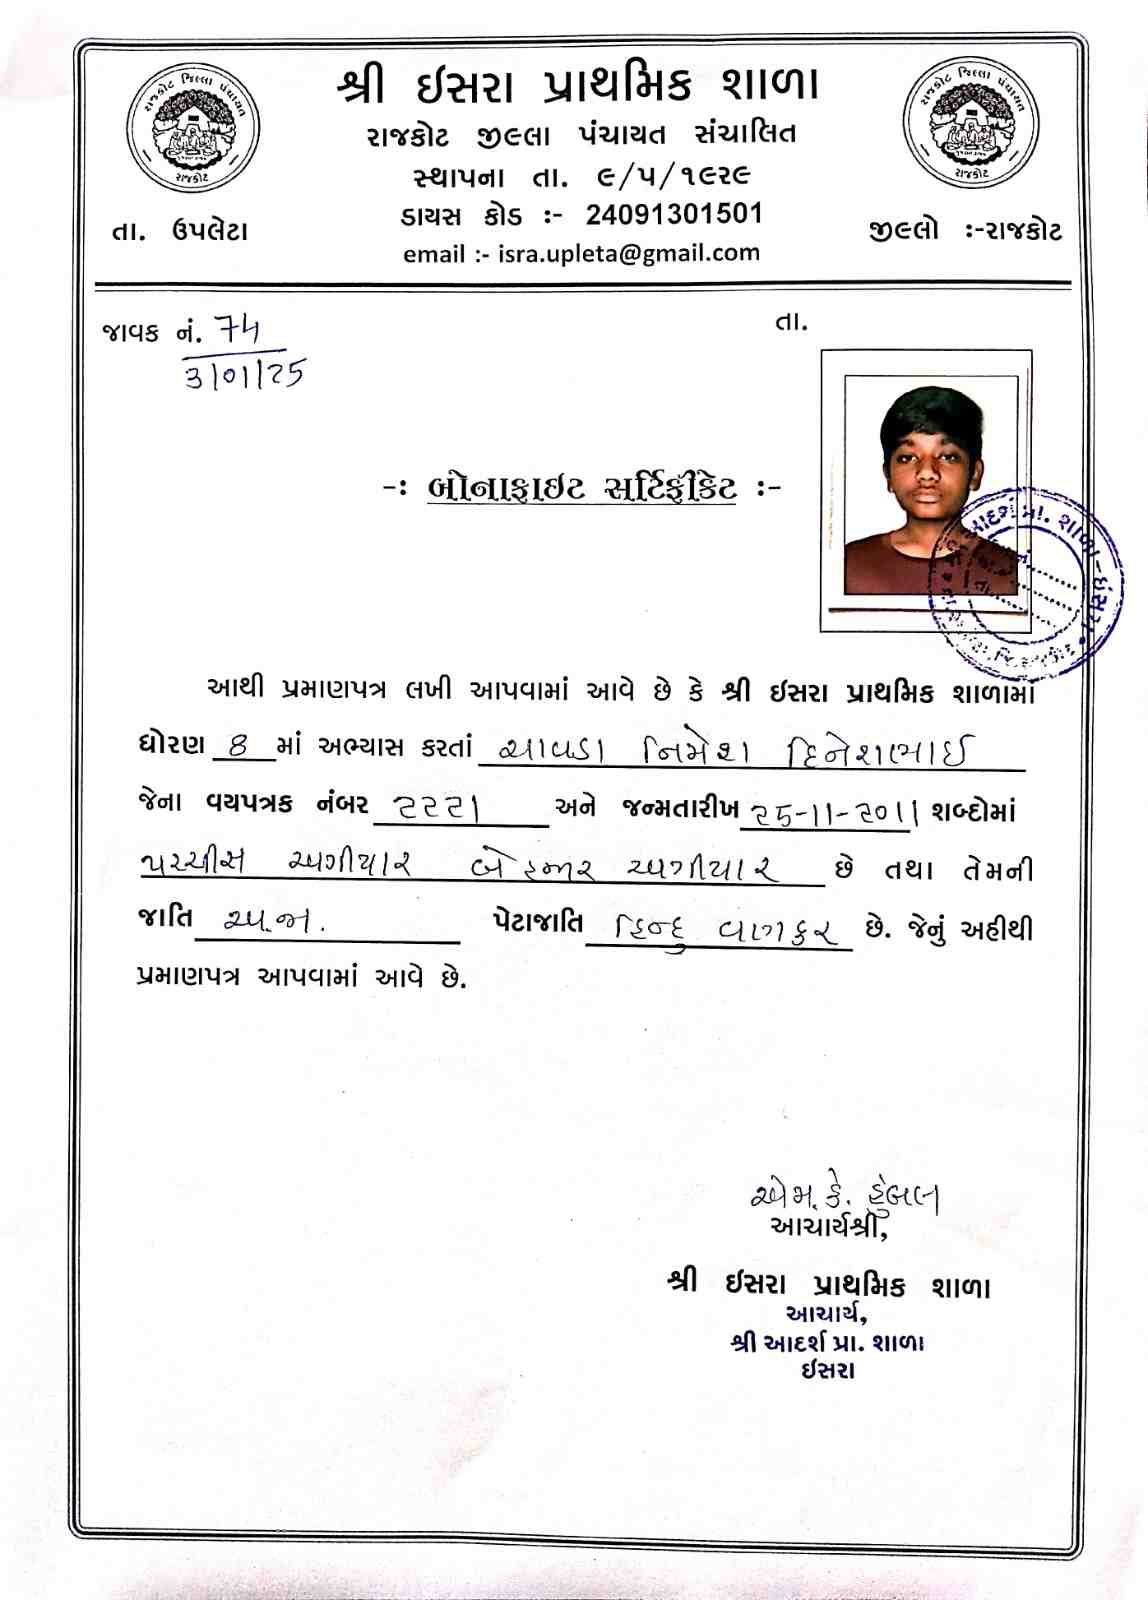 શ્રી ઈસરા પ્રાથમિક શાળા
રાજકોટ જીલ્લા પંચાયત સંચાલિત
સ્થાપના તા. ૯/૫/૧૯૨૯
ડાયસ કોડ :- 24091301501
email :- isra.upleta@gmail.com
તા. ઉપલેટા
જીલ્લો :-રાજકોટ
રાજકોટ જિલ્લા પંચાયત
રાજકોટ
રાજકોટ જિલ્લા પંચાયત
રાજકોટ
જાવક નં. 74
3/01/25
તા.
-: બોનાફાઇટ સર્ટિફીકેટ :-
આદર્શ પ્રા. શાળા-ઇસરા
આથી પ્રમાણપત્ર લખી આપવામાં આવે છે કે શ્રી ઈસરા પ્રાથમિક શાળામાં
ધોરણ 8 માં અભ્યાસ કરતાં ચાવડા નિમેશ દિનેશભાઈ
જેના વયપત્રક નંબર ૨૨૨૧ અને જન્મતારીખ ૨૫-૧૧-૨૦૧૧ શબ્દોમાં
પચ્ચીસ અગીયાર બે હજાર અગીયાર છે તથા તેમની
જાતિ અ.જા. પેટાજાતિ હિન્દુ વણકર છે. જેનું અહીથી
પ્રમાણપત્ર આપવામાં આવે છે.
એમ. કે. હુંબલ
આચાર્યશ્રી,
શ્રી ઈસરા પ્રાથમિક શાળા
આચાર્ય,
શ્રી આદર્શ પ્રા. શાળા
ઈસરા